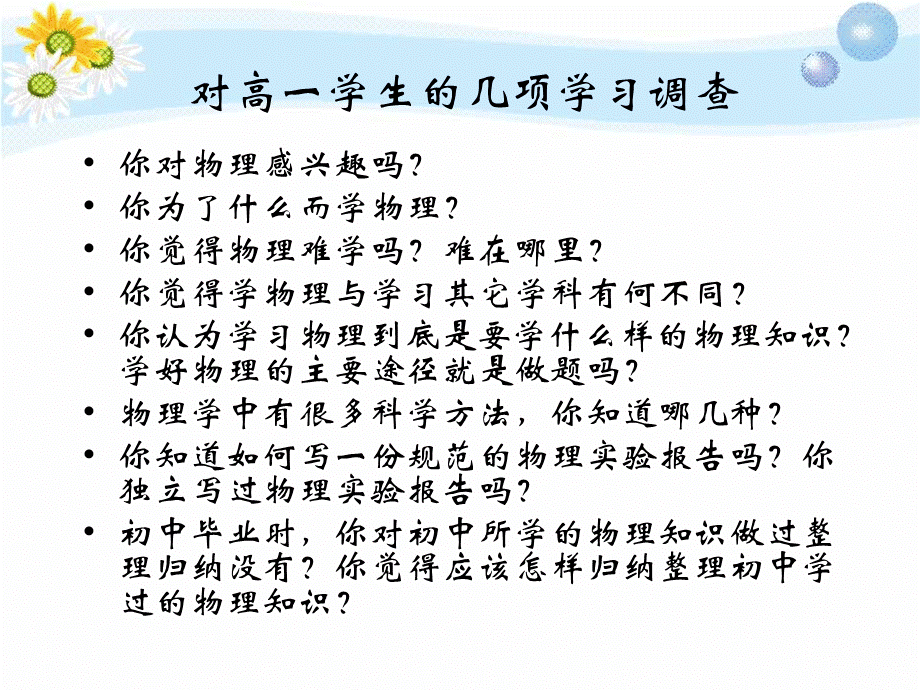 对高一学生的几项学习调查
• 你对物理感兴趣吗？
• 你为了什么而学物理？
• 你觉得物理难学吗？难在哪里？
• 你觉得学物理与学习其它学科有何不同？
• 你认为学习物理到底是要学什么样的物理知识？
学好物理的主要途径就是做题吗？
• 物理学中有很多科学方法，你知道哪几种？
• 你知道如何写一份规范的物理实验报告吗？你
独立写过物理实验报告吗？
• 初中毕业时，你对初中所学的物理知识做过整
理归纳没有？你觉得应该怎样归纳整理初中学
过的物理知识？